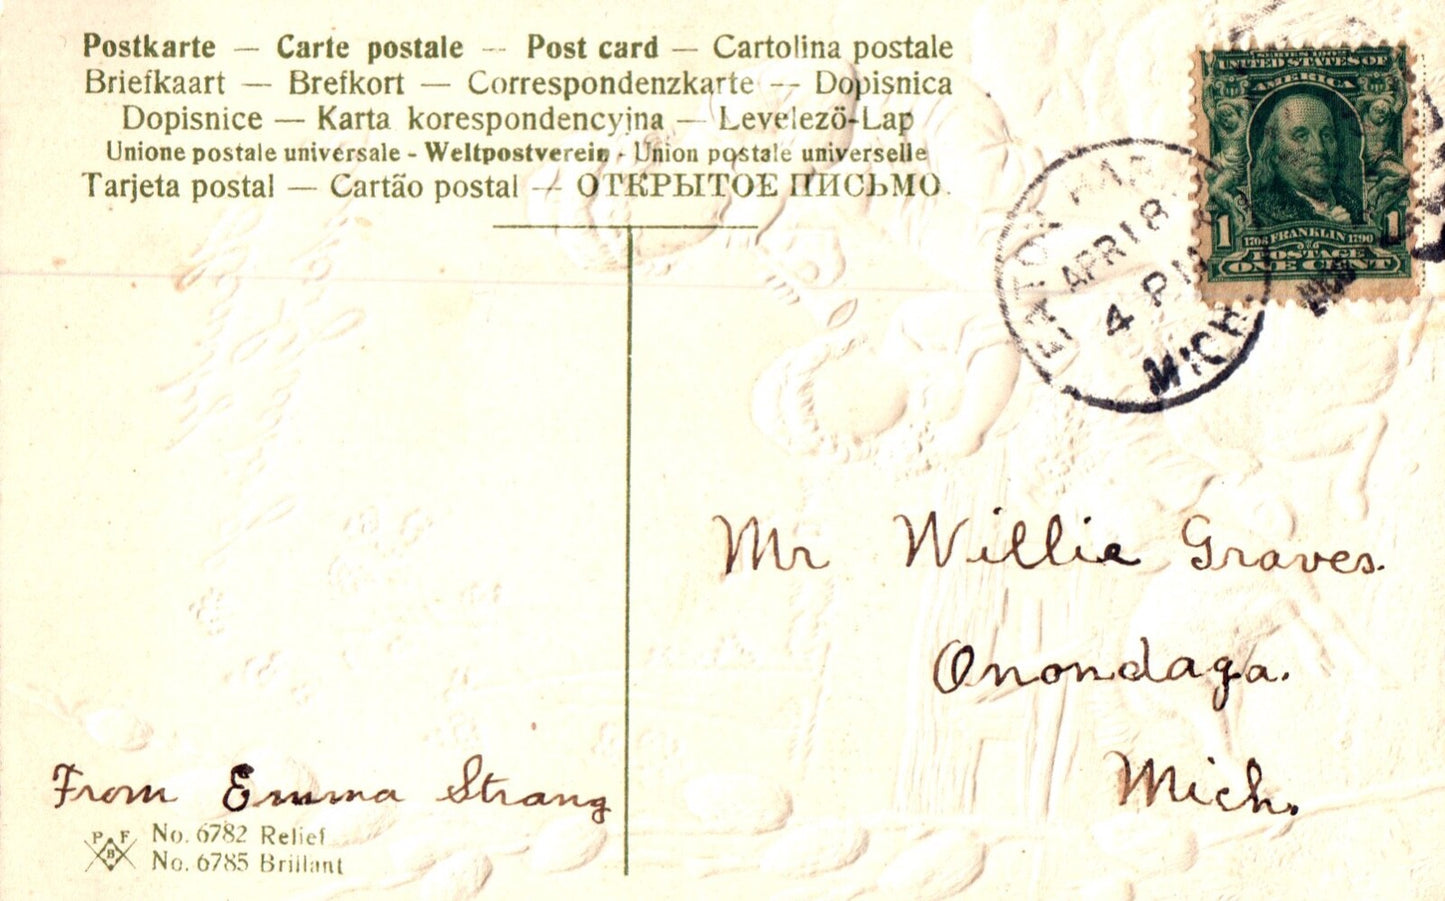 Postkarte — Carte postale — Post card — Cartolina postale
Briefkaart — Brefkort — Correspondenzkarte — Dopisnica
Dopisnice — Karta korespondencyjna — Levelezö-Lap
Unione postale universale - Weltpostverein - Union postale universelle
Tarjeta postal — Cartão postal — ОТКРЫТОЕ ПИСЬМО.
SERIES 1902
UNITED STATES OF
AMERICA
1 1
1706 FRANKLIN 1790
POSTAGE
ONE CENT
EATON
APR 18
4 PM
MICH.
Mr Willie Graves.
Onondaga.
Mich.
From Emma Strang
P F
B
No. 6782 Relief
No. 6785 Brillant